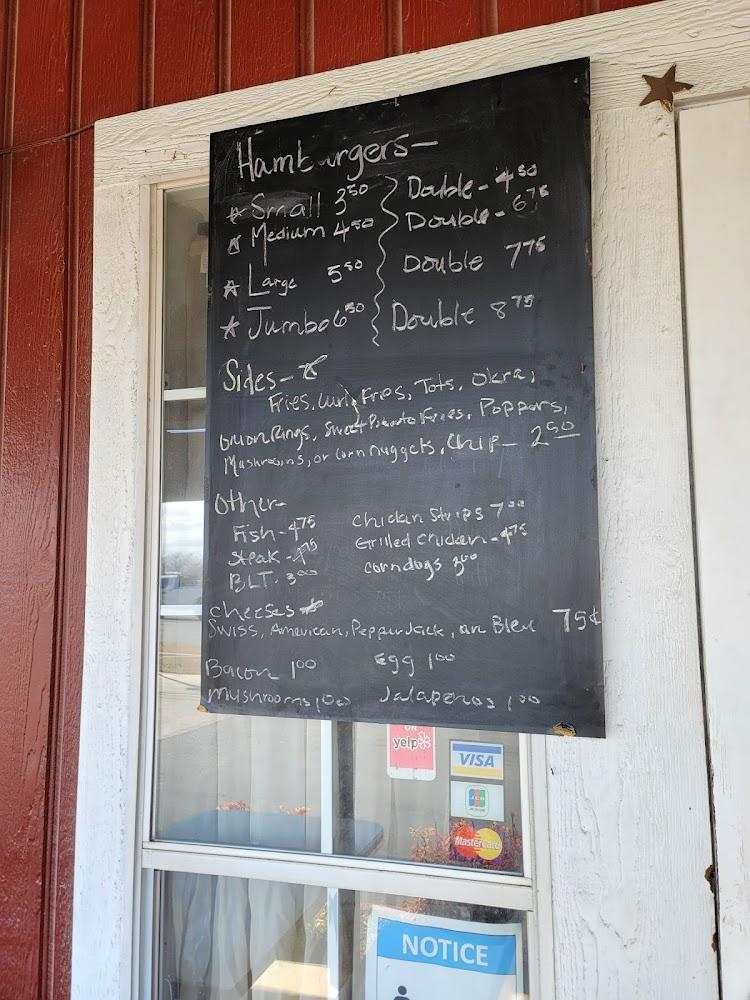 Hamburgers-
Small 3.50 Double - 4.50
Medium 4.50 Double - 6.75
Large 5.50 Double 7.75
Jumbo 6.50 Double 8.75
Sides-
Fries, Curly Fries, Tots, Okra,
Onion Rings, Sweet Potato Fries, Poppers,
Mushrooms, or Corn Nuggets, Chip - 2.50
Other-
Fish - 4.75 Chicken Strips 7.00
Steak - 4.75 Grilled Chicken - 4.75
BLT - 3.00 corndogs 3.00
cheeses
Swiss, American, PepperJack, an Bleu 75¢
Bacon 1.00 Egg 1.00
Mushrooms 1.00 Jalapenos 1.00
ON
yelp
VISA
JCB
MasterCard
NOTICE